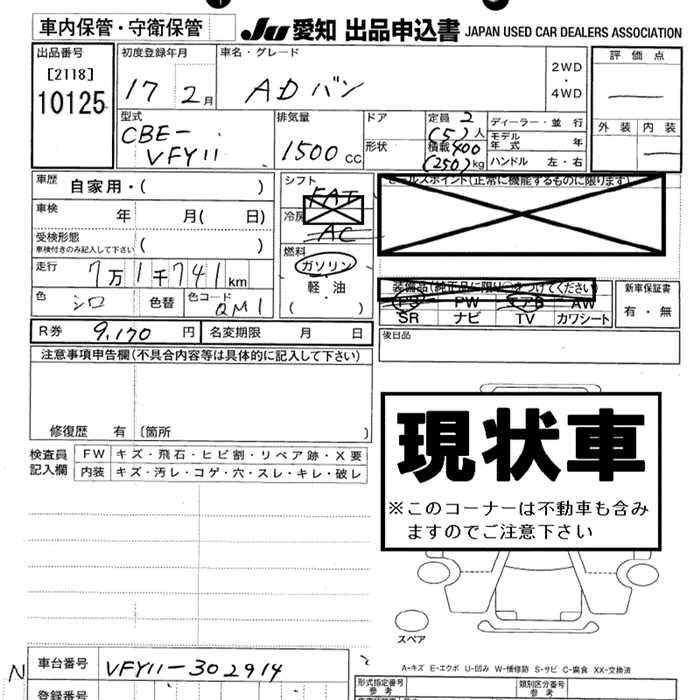 車内保管・守衛保管
JU 愛知 出品申込書 JAPAN USED CAR DEALERS ASSOCIATION
出品番号
[2118]
10125
初度登録年月
17 2月
車名・グレード
ADバン
2WD
・
4WD
評価点
外装 内装
型式
CBE-
VFY11
排気量
1500 CC
ドア
形状
定員 2
(5)人
積載 400
(250)kg
ディーラー・並行
モデル年式 年
ハンドル 左・右
車歴 自家用・( )
車検 年 月( 日)
受検形態
車検付きのみ記入して下さい ( )
走行 7万1千741km
色 シロ 色替 色コード QM1
シフト
FAT
冷房
AC
燃料
ガソリン
軽・油
( )
セールスポイント(正常に機能するものに限ります)
装備品(純正品に限り○をつけてください)
PS PW エアB AW
SR ナビ TV カワシート
新車保証書
有・無
後日品
R券 9,170円 名変期限 月 日
注意事項申告欄(不具合内容等は具体的に記入して下さい)
修復歴 有 〔箇所 )
検査員記入欄
FW キズ・飛石・ヒビ割・リペア跡・X要
内装 キズ・汚レ・コゲ・穴・スレ・キレ・破レ
現状車
※このコーナーは不動車も含み
ますのでご注意下さい
スペア
A-キズ E-エクボ U-凹み W-補修跡 S-サビ C-腐食 XX-交換済
N
車台番号 VFY11-302914
登録番号
形式指定番号
参考
類別区分番号
参考